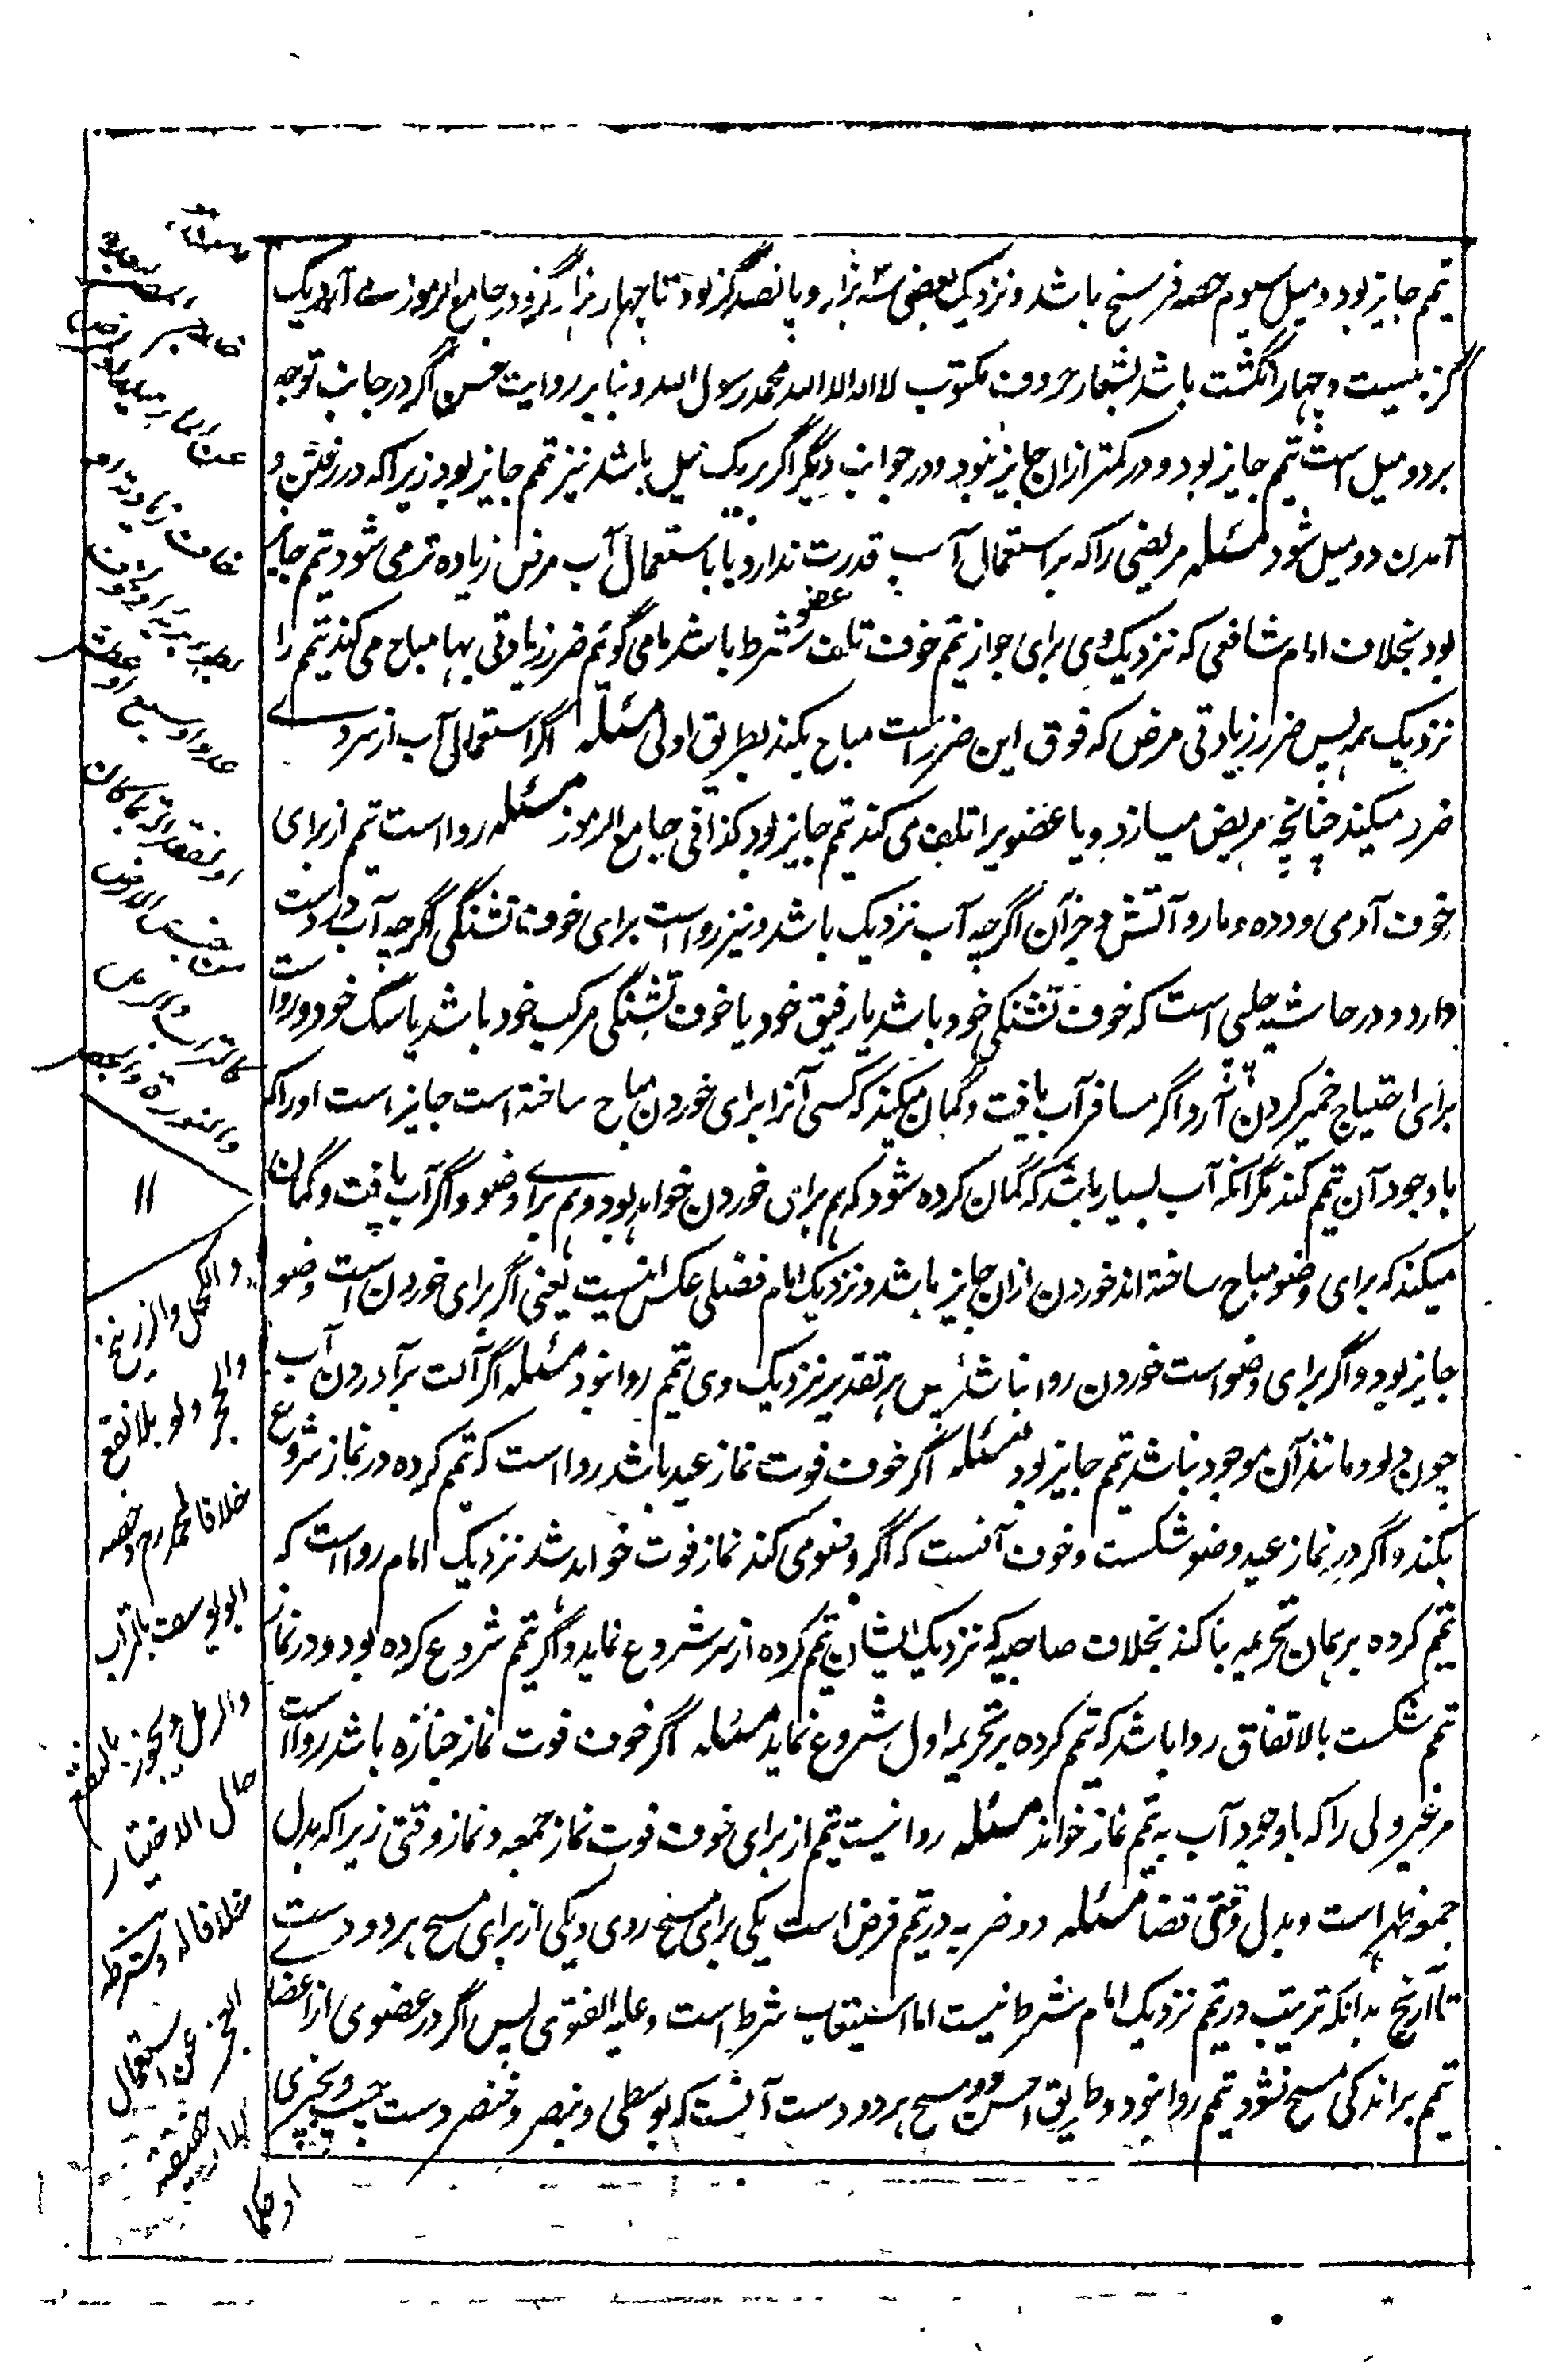 تیمم جایز بود و میل سیوم حصه فرسخ باشد و نزدیک بعضی سه هزار و پانصد گز بود تا چهار هزار گز و در جامع الرموز است آورد یک
گز بیست و چهار انگشت باشد بشمار حروف مکتوب لا اله الا الله محمد رسول الله و بنابر روایت حسن اگر در جانب توجه
بر دو میل است تیمم جایز بود و در کمتر ازان جایز نبود و در جوانب دیگر اگر بر یک میل باشد نیز تیمم جایز بود زیرا که در رفتن و
آمدن دو میل شود مسئله مریضی را که بر استعمال آب قدرت ندارد یا باستعمال آب مرض زیاده تر می شود تیمم جایز
بود بخلاف امام شافعی که نزدیک وی برای جواز تیمم خوف تلف عضو شرط باشد ما می گوئیم ضرر زیادتی بها مباح می کند تیمم را
نزدیک همه پس ضرر زیادتی مرض که فوق این ضرر است مباح بکند بطریق اولی مسئله اگر استعمال آب از سردے
ضرر میکند چنانچه مریض میسازد و یا عضو یرا تلف می کند تیمم جایز بود کذا فی جامع الرموز مسئله روا است تیمم از برای
خوف آدمی و دده و مار و آتش و جز آن اگرچه آب نزدیک باشد و نیز روا است برای خوف تشنگی اگرچه آب در دست
دارد و در حاشیه چلپی است که خوف تشنگی خود باشد یا رفیق خود یا خوف تشنگی مرکب خود باشد یا سگ خود و روا است
برای احتیاج خمیر کردن آرد اگر مسافر آب یافت و گمان میکند که کسی آنرا برای خوردن مباح ساخته است جایز است او را که
با وجود آن تیمم کند مگر آنکه آب بسیار باشد که گمان کرده شود که هم برای خوردن خواهد بود و هم براے وضو و اگر آب یافت و گمان
میکند که برای وضو مباح ساخته اند خوردن ازان جایز باشد و نزدیک امام فضلی عکس اینست یعنی اگر برای خوردن است وضو
جایز بود و اگر برای وضو است خوردن روا نباشد پس بر تقدیر نزدیک وی تیمم روا نبود مسئله اگر آلت برآوردن آب
چون دلو و مانند آن موجود نباشد تیمم جایز بود مسئله اگر خوف فوت نماز عید باشد روا است که تیمم کرده در نماز شروع
بکند و اگر در نماز عید وضو شکست و خوف آنست که اگر وضو می کند نماز فوت خواهد شد نزدیک امام روا است که
تیمم کرده بر همان تحریمه بنا کند بخلاف صاحبیه که نزدیک ایشان تیمم کرده از سر شروع نماید و اگر تیمم شروع کرده بود و در نماز
تیمم شکست بالاتفاق روا باشد که تیمم کرده بر تحریمه اول شروع نماید مسئله اگر خوف فوت نماز جنازه باشد روا است
مر غیر ولی را که با وجود آب به تیمم نماز خواند مسئله روا نیست تیمم از برای خوف فوت نماز جمعه و نماز وقتی زیرا که بدل
جمعه ظهر است و بدل وقتی قضا مسئله دو ضربه در تیمم فرض است یکی برای مسح روی و یکی از برای مسح هر دو دست
تا آرنج بدانکه ترتیب در تیمم نزدیک امام شرط نیست اما استیعاب شرط است و علیه الفتوی پس اگر در عضوی از اعضاے
تیمم بر اندکی مسح نشود تیمم روا نبود و طریق احسن در مسح هر دو دست آنست که بوسطی و بنصر و خنصر دست چپ و بچیزی
او حکما
والکحل والزرنیخ
والحجر ولو بلا نقع
خلافا لمحمد رح وخصه
ابو یوسف بالتراب
والرمل ویجوز بالنقع
حال الاختیار
خلافا له وشرطه
العجز عن استعمال
الماء حقیقة